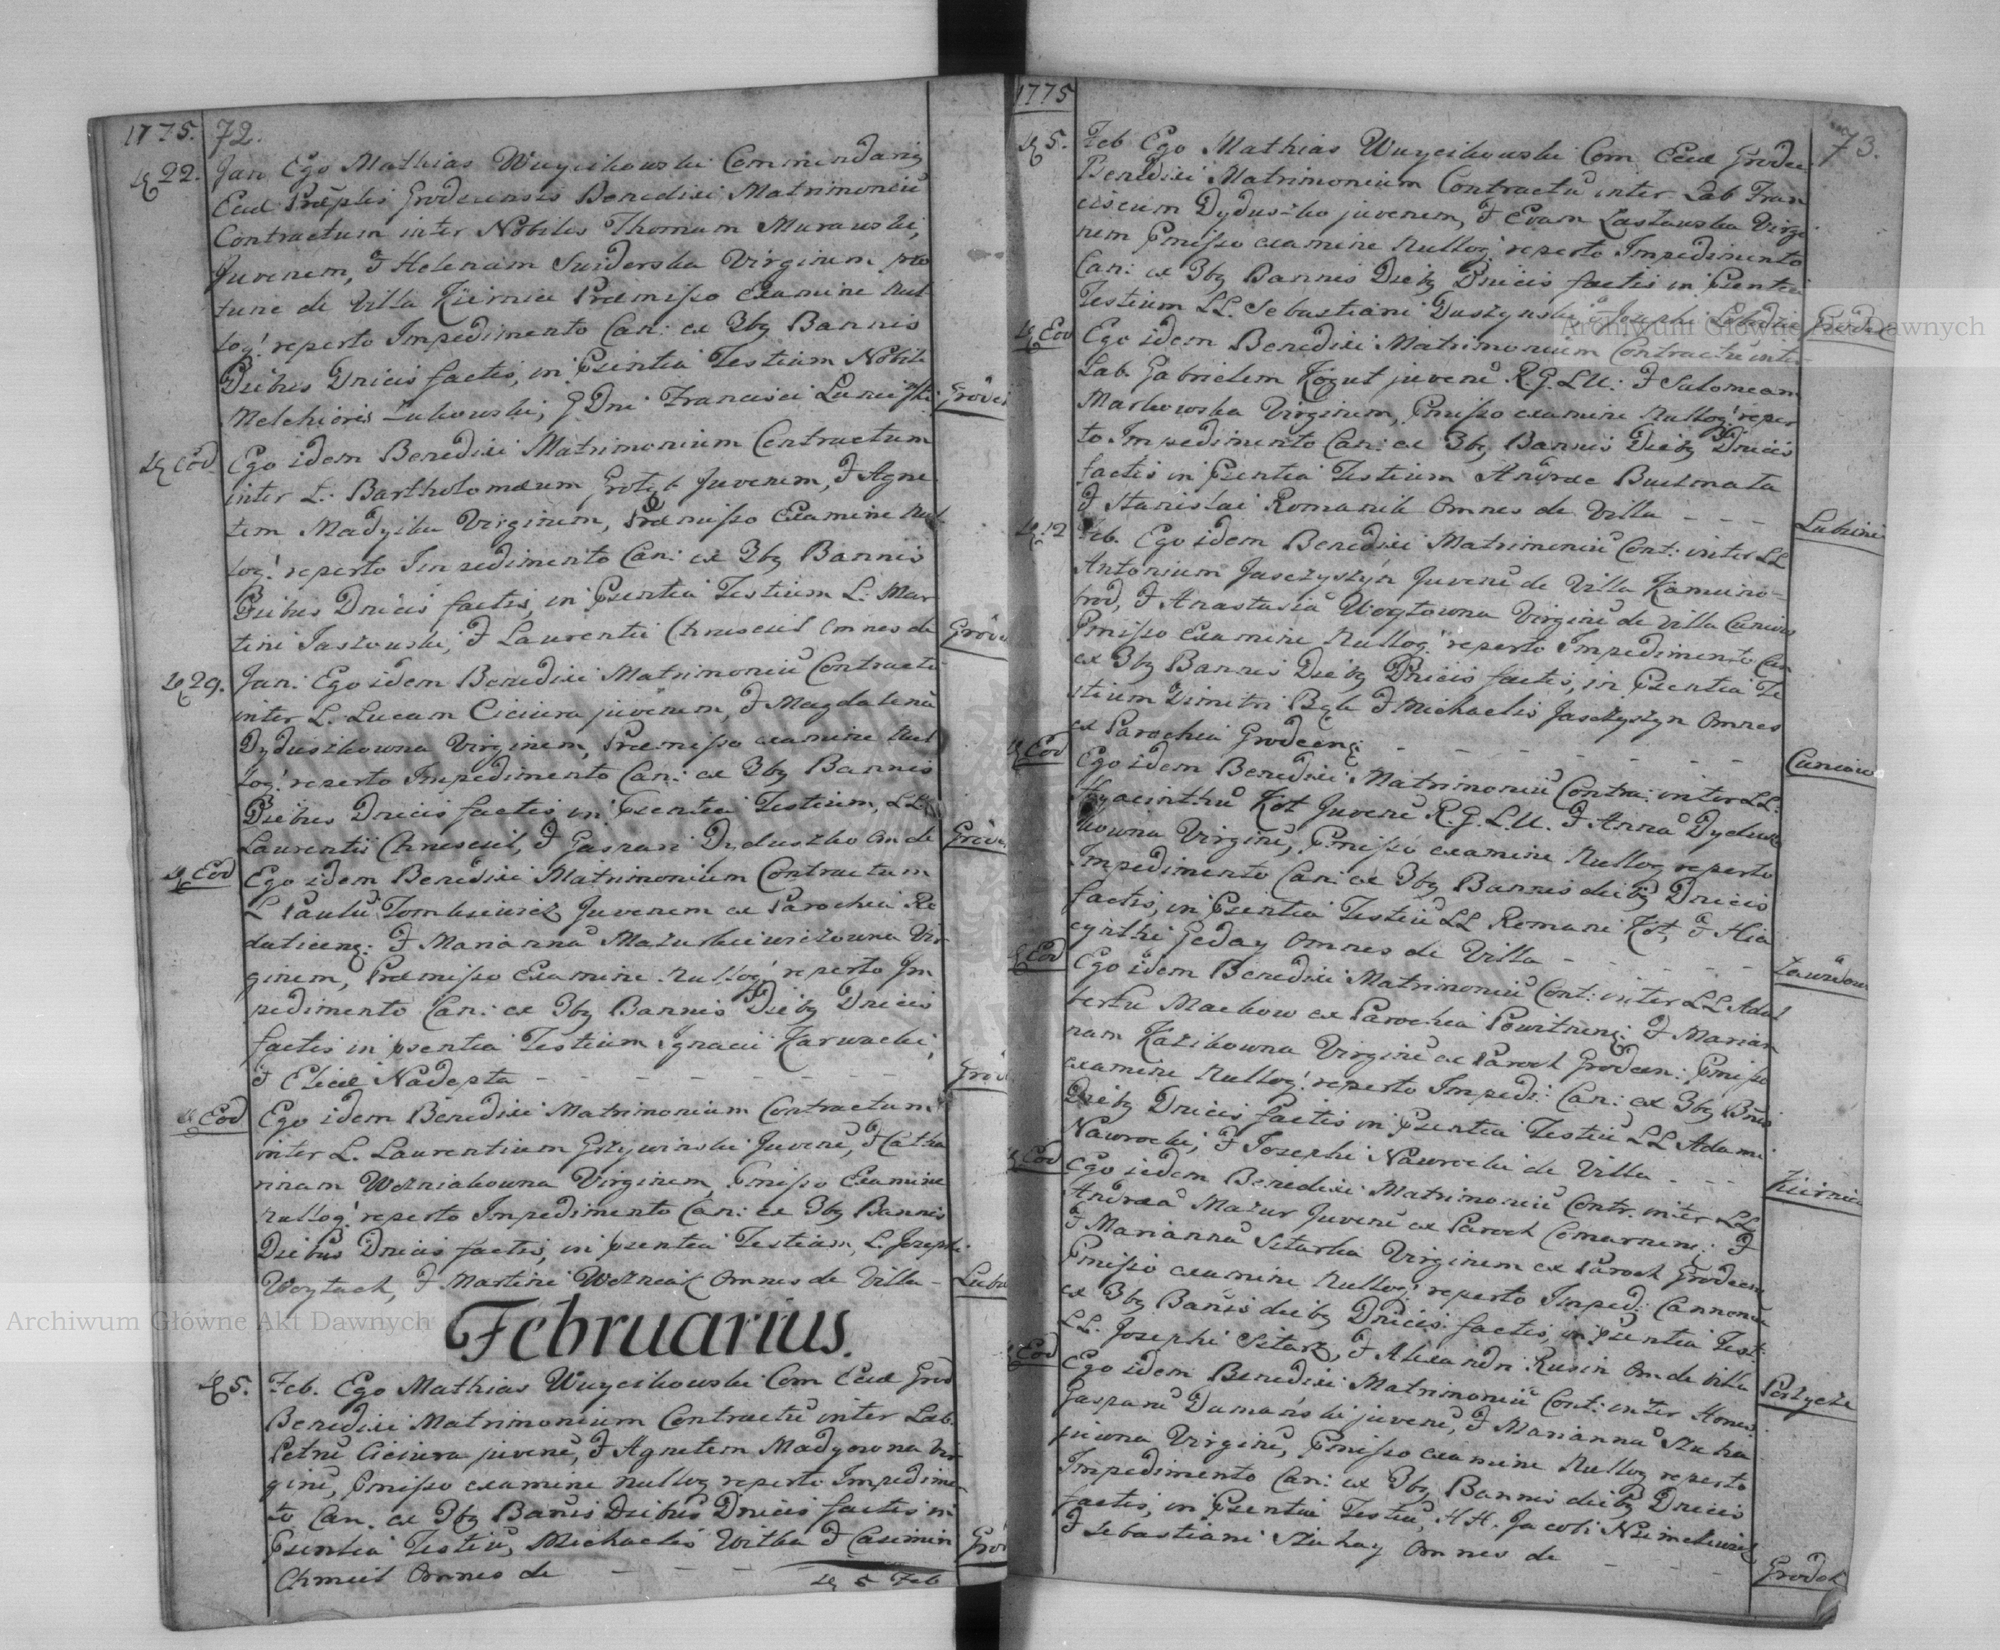 1775. 72.
22. Jan Ego Mathias Wuycikowski Commendariq
Eccl Præptis Grodecensis Benedixi Matrimoniū
Contractum inter Nobiles Thomam Murawski,
Juvenem, & Helenam Swiderska Virginem
de Villa Kiernice Præmisso Examine Nul
loq! reperto Impedimento Can: ex 3bq Bannis
Diebus Dnicis factis, in Psentia Testium Nobile
Melchioris Lukowski, G Dni Francisci
Grodec
Eod Ego idem Benedixi Matrimonium Contractum
inter L. Bartholomæum Juvenem, & Agne
tem Madyika Virginem, Præmisso Examine Nul
loq! reperto Impedimento Can: ex 3bq Bannis
Diebus Dnicis factis, in Psentia Testium L. Mar
tini Jasłowski, & Laurentii Chmeiel Omnes de
Grode
29. Jan: Ego idem Benedixi Matrimoniū Contractū
inter L. Lucam Ciciura juvenem, & Magdalenā
Dyduszkowna Virginem, Præmisso examine Nul
loq! reperto Impedimento Can: ex 3bq Bannis
Diebus Dnicis factis, in Psentia Testium, LL
Laurentii Chmeiel, & Gaspari Dyduszko Om de
Grode
Eod Ego idem Benedixi Matrimonium Contractum
L Paulū Tomkiewicz Juvenem ex Parochia Ro
daticenq: & Mariannā Mazurkiewiczowna Vir
ginem, Præmisso Examine Nulloq! reperto Im
pedimento Can: ex 3bq Bannis Diebq Dnicis
factis in psentia Testium Ignacii Karwacki,
& Eliæ Nadepta - - - - - - - -
Grod
Eod Ego idem Benedixi Matrimonium Contractum
inter L. Laurentium Grzywinski Juvenē, & Catha
rinam Wozniakowna Virginem, Pmisso Examine
Nulloq! reperto Impedimento Can: ex 3bq Bannis
Diebus Dnicis factis, in psentia Testium, L. Josephi
Woytach, & Martini Wozniak Omnes de Villa -
Lubi
Februarius.
5. Feb. Ego Mathias Wuycikowski Com Eccl Grod
Benedixi Matrimonium Contractū inter Lab.
Petrū Ciciura juvenē, & Agnetem Madyowna Vir
ginē, Pmisso examine nulloq reperto Impedime
to Can. ex 3bq Banis Diebus Dnicis factis in
Psentia Testiū, Michaelis Witka & Casimiri
Chmiel Omnes de - - - -
Gro
5 Feb
1775
73.
5. Feb Ego Mathias Wuycikowski Com Eccl Grodec
Benedixi Matrimonium Contractū inter Lab Fran
ciscum Dyduszko juvenem, & Evam Zastawska Virgi
nem Pmisso examine Nulloq! reperto Impedimento
Can: ex 3bq Bannis Diebq Dnicis factis in Psentia
Testium LL. Sebastiani Duszynski & Josephi
Grodek
Eod Ego idem Benedixi Matrimonium Contractū inter
Lab. Gabrielem Kogut juvenē R.G.L.U: & Salomeam
Markowska Virginem, Pmisso examine Nulloq! reper
to Impedimento Can: ex 3bq Bannis Diebq Dnicis
factis in Psentia Testium Andreæ
& Stanislai Romanik Omnes de Villa - - -
Lubiene
12 Feb. Ego idem Benedixi Matrimoniū Cont: inter LL
Antonium Jaszczyszyn Juvenē de Villa Kamieno-
brod, & Anastasiā Woytowna Virginē de Villa Cuniow
Pmisso Examine Nulloq! reperto Impedimento Can
ex 3bq Bannis Diebq Dnicis factis, in Psentia Te
stium Dimitri Byk & Michaelis Jaszczyszyn Omnes
ex Parochia Grodecenq: - - - - -
Cuniow
Eod Ego idem Benedixi Matrimoniū Contra: inter LL.
Hyacinthū Kot Juvenē R.G.L.U. & Annā
kowna Virginē, Pmisso examine Nulloq reperto
Impedimento Can: ex 3bq Bannis diebq Dnicis
factis, in Psentia Testiū LL Romani Kot, & Hia
cynthi Geday Omnes de Villa - - - -
Zawidow
Eod Ego idem Benedixi Matrimoniū Cont: inter LL Adal
bertū Maekow ex Parochia Powitnenq: & Marian
nam Kazikowna Virginē ex Paroch Grodecen: Pmisso
examine Nulloq! reperto Impedi: Can: ex 3bq Bnis
Diebq Dnicis factis in Psentia Testiū LL Adami
Nawrocki, & Josephi Nawrocki de Villa - - -
Kiernica
Eod Ego idem Benedixi Matrimoniū Contr. inter LL
Andreā Mazur Juvenē ex Paroch Comarnen: &
& Mariannā Sitarka Virginem ex Paroch Grodecen
Pmisso examine Nulloq! reperto Imped: Cannonic
ex 3bq Banis diebq Dnicis factis, in Psentia Test.
LL. Josephi Sitarz, & Alexandri Rusin Om. de Villa
Porzycze
Eod Ego idem Benedixi Matrimoniū Cont: inter Hones.
Gasparū Dumanski juvenē, & Mariannā Stuha
jowna Virginē, Pmisso examine Nulloq reperto
Impedimento Can: ex 3bq Bannis diebq Dnicis
factis, in Psentia Testiū, HH. Jacobi
& Sebastiani Stuhay Omnes de - - -
Grodek
Archiwum Główne Akt Dawnych
Archiwum Główne Akt Dawnych